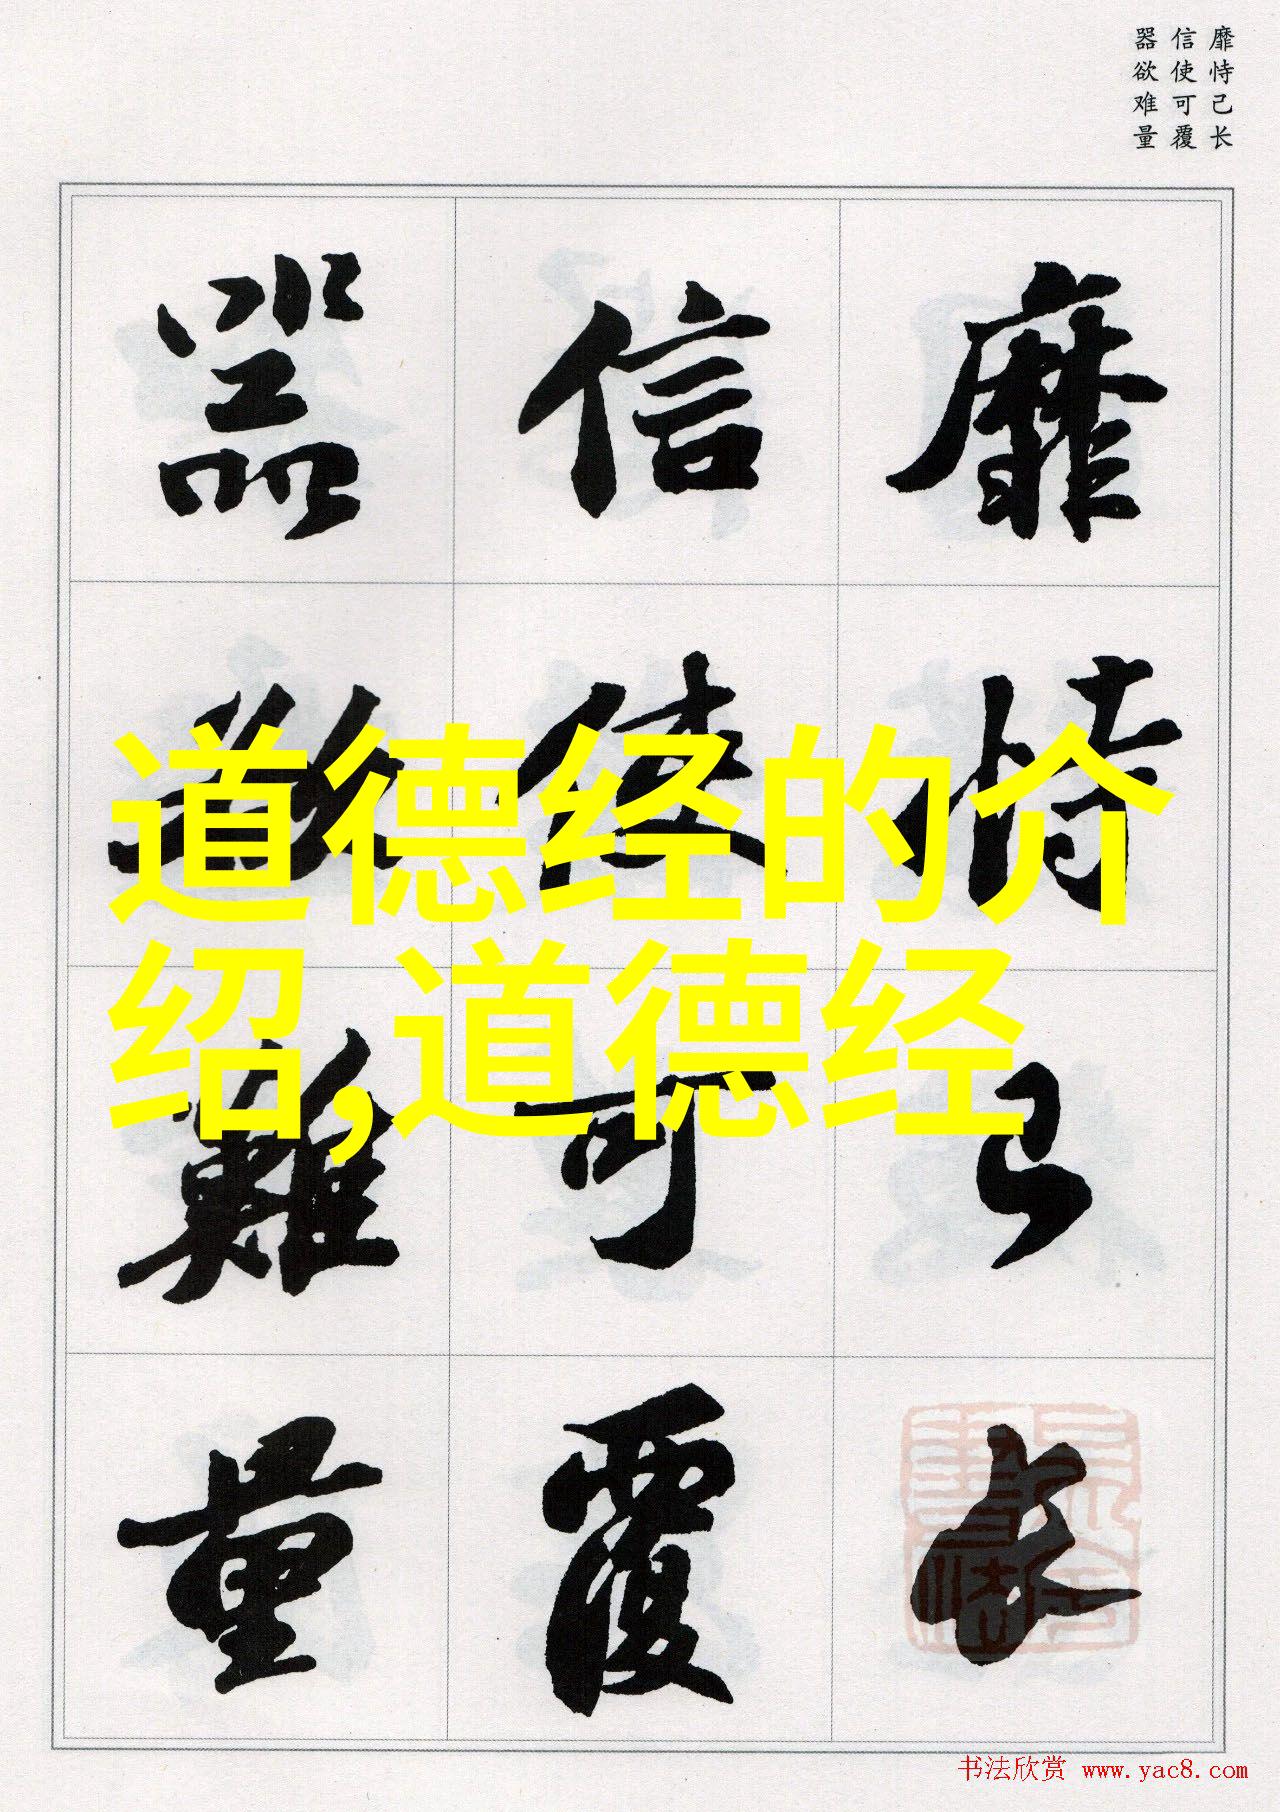 靡恃己长
信使可覆
器欲难量
靡恃己长
信使可覆
器欲難量
道德经的介
绍,道德经
书法欣赏 www.yac8.com